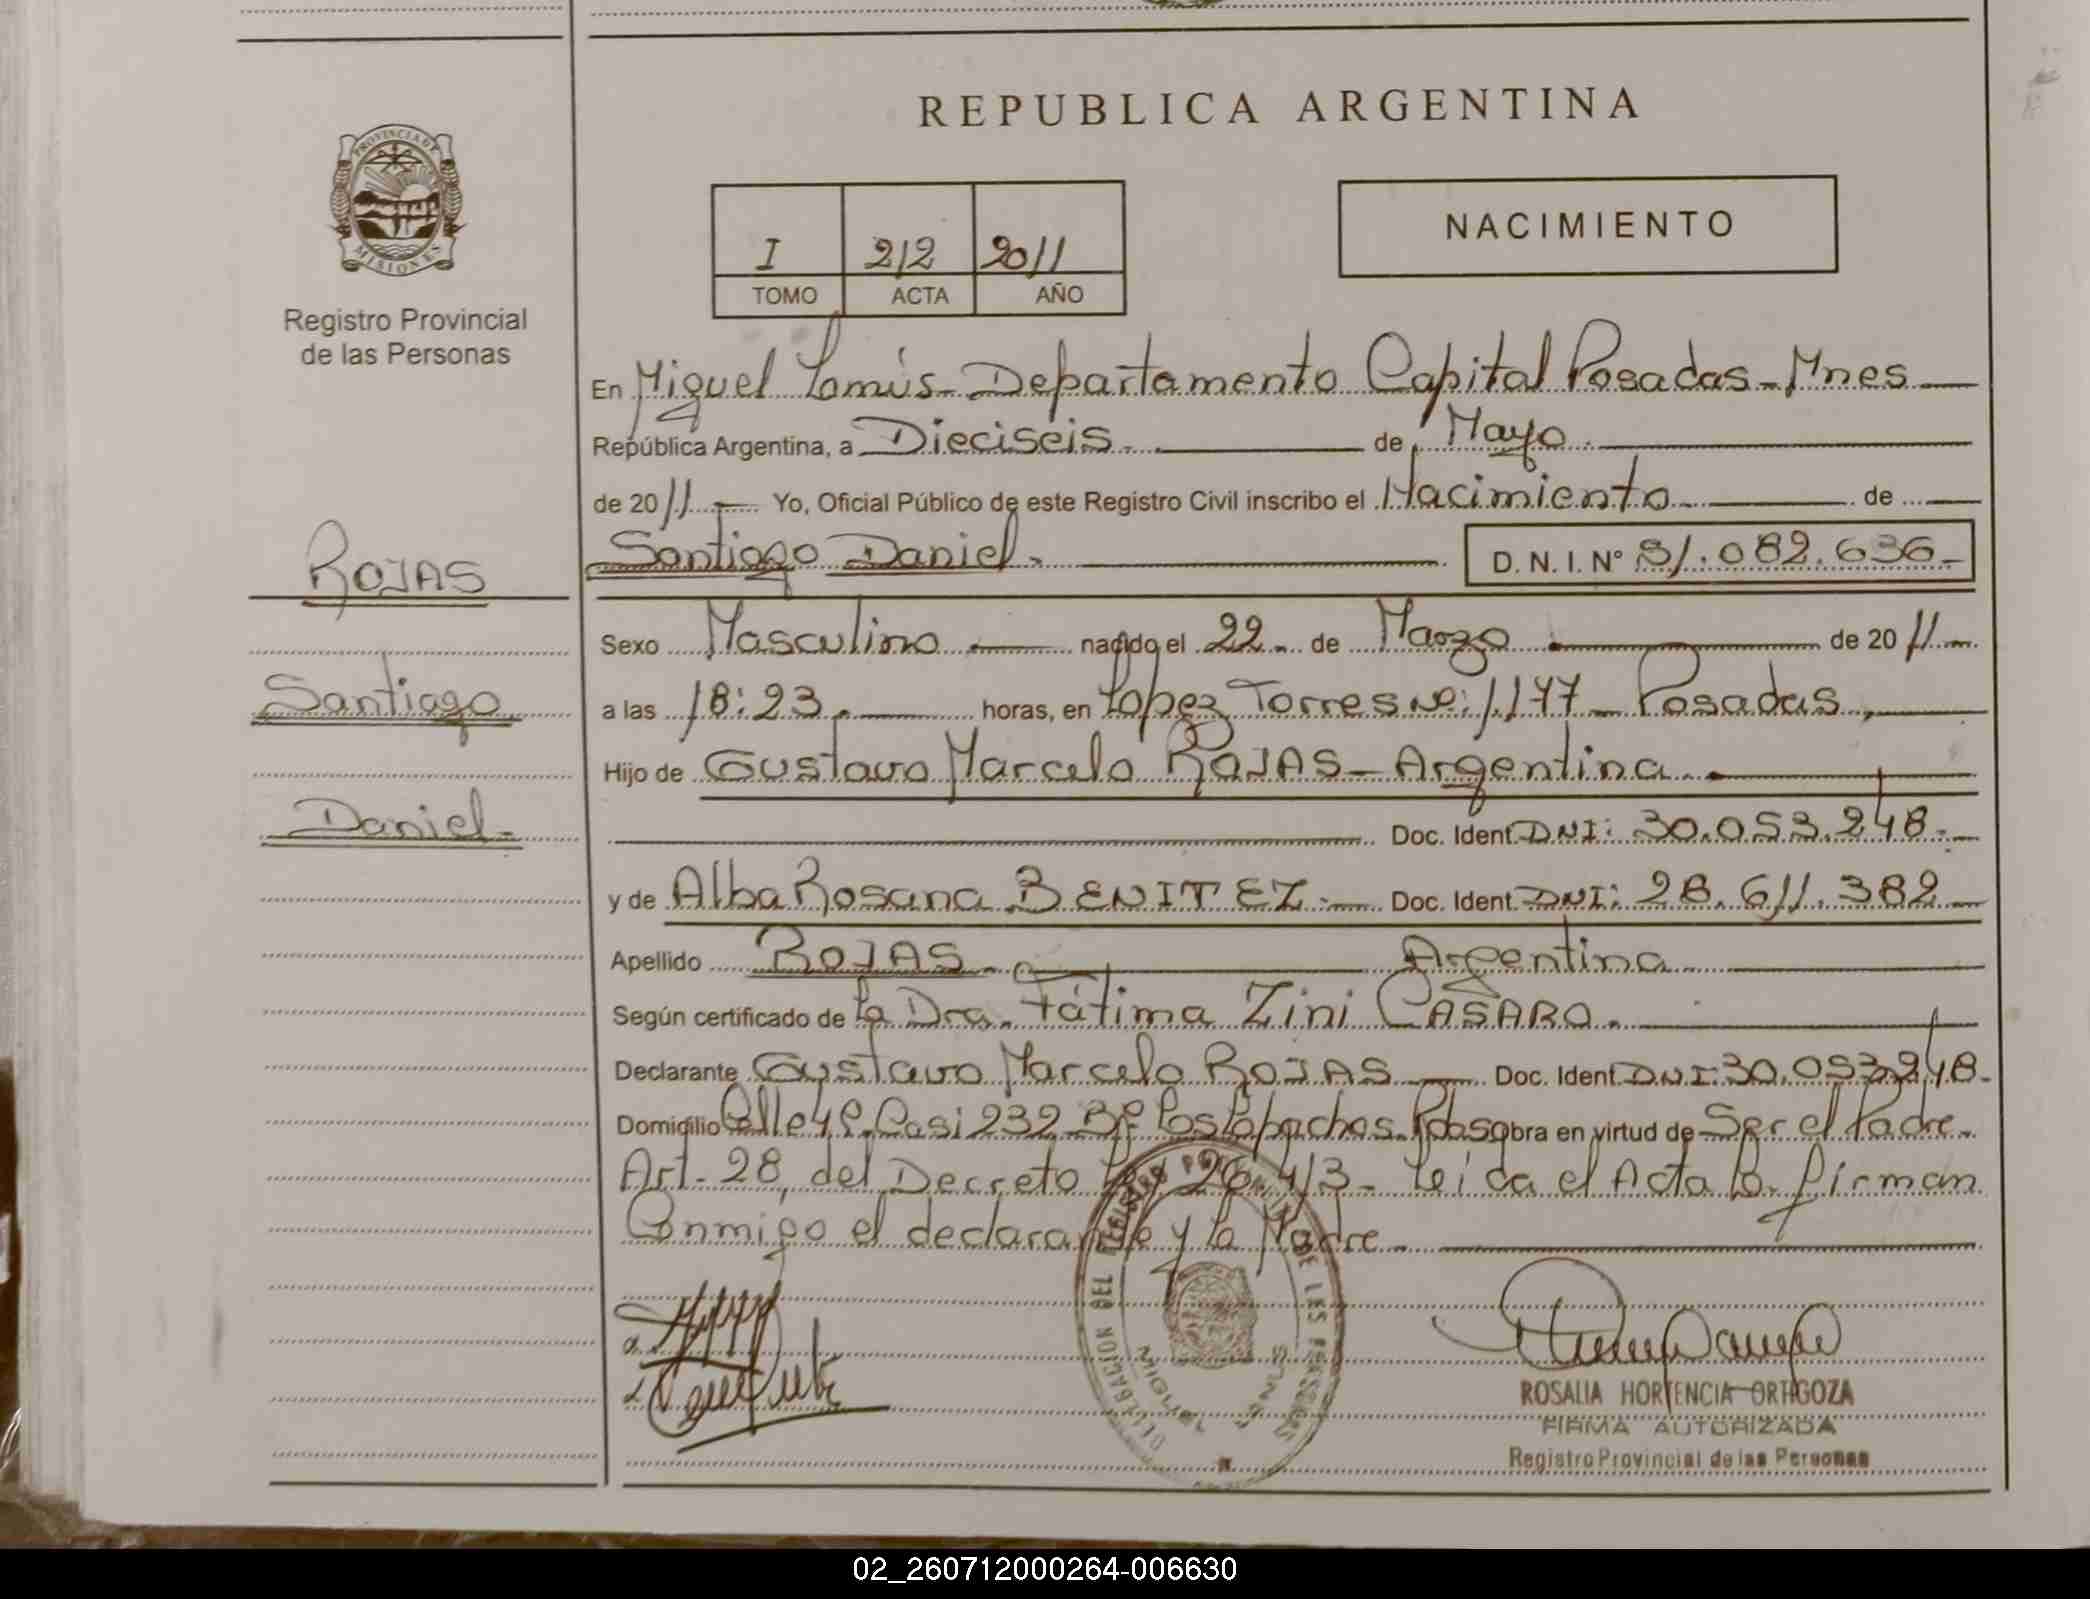 REPUBLICA ARGENTINA
PROVINCIA DE
MISIONES
Registro Provincial
de las Personas
NACIMIENTO
I 212 2011
TOMO ACTA AÑO
En Miguel Lanús - Departamento Capital Posadas - Mnes
República Argentina, a Dieciseis. de Mayo
de 2011 Yo, Oficial Público de este Registro Civil inscribo el Nacimiento de
Santiago Daniel. D. N. I. Nº 51.082.636-
ROJAS
Santiago
Daniel-
Sexo Masculino nacido el 22 - de Marzo de 2011
a las 18:23 horas, en Lopez Torres Nº: 1177 - Posadas
Hijo de Gustavo Marcelo ROJAS - Argentina
Doc. Ident. DNI: 30.053.248-
y de Alba Rosana BENITEZ - Doc. Ident. DNI: 28.611.382
Apellido ROJAS - Argentina
Según certificado de La Dra. Fátima Zini CASARO.
Declarante Gustavo Marcelo ROJAS Doc. Ident. DNI: 30.053.248-
Domicilio Calle 48 Casi 232 Bº Los Lapachos. Pdas obra en virtud de Ser el Padre-
Art. 28, del Decreto Ley 26.413 - Leída el Acta la firman
Conmigo el declarante y la Madre
DELEGACION DEL REGISTRO PROVINCIAL DE LAS PERSONAS
MIGUEL LANUS
ROSALIA HORTENCIA ORTIGOZA
FIRMA AUTORIZADA
Registro Provincial de las Personas
02_260712000264-006630